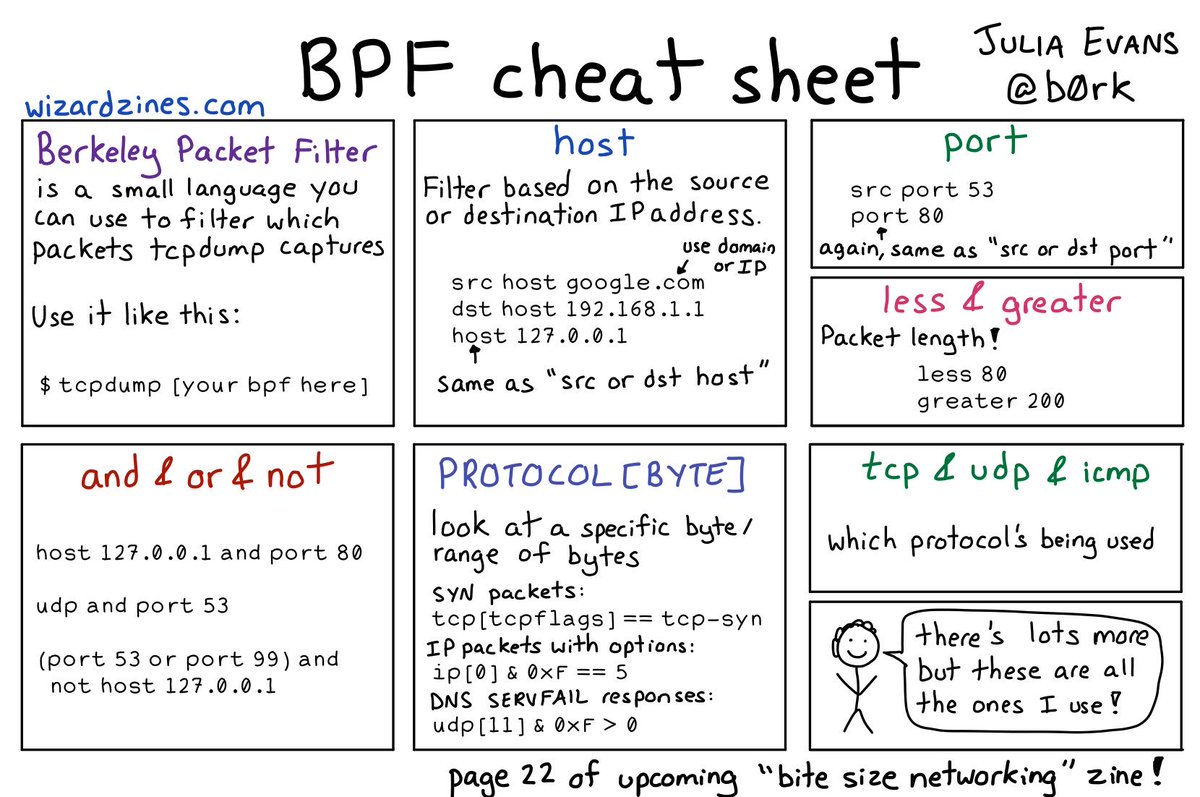 BPF cheat sheet
JULIA EVANS
@b0rk
wizardzines.com
Berkeley Packet Filter
is a small language you
can use to filter which
packets tcpdump captures
Use it like this:
$ tcpdump [your bpf here]
host
Filter based on the source
or destination IP address.
use domain
or IP
src host google.com
dst host 192.168.1.1
host 127.0.0.1
same as "src or dst host"
port
src port 53
port 80
again, same as "src or dst port"
less & greater
Packet length!
less 80
greater 200
and & or & not
host 127.0.0.1 and port 80
udp and port 53
(port 53 or port 99) and
not host 127.0.0.1
PROTOCOL [BYTE]
look at a specific byte/
range of bytes
SYN packets:
tcp[tcpflags] == tcp-syn
IP packets with options:
ip[0] & 0xF == 5
DNS SERVFAIL responses:
udp[11] & 0xF > 0
tcp & udp & icmp
which protocol's being used
there's lots more
but these are all
the ones I use!
page 22 of upcoming "bite size networking" zine!